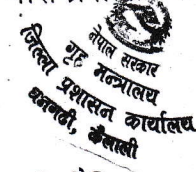 नेपाल सरकार
गृह मन्त्रालय
जिल्ला प्रशासन कार्यालय
धनगढी, कैलाली